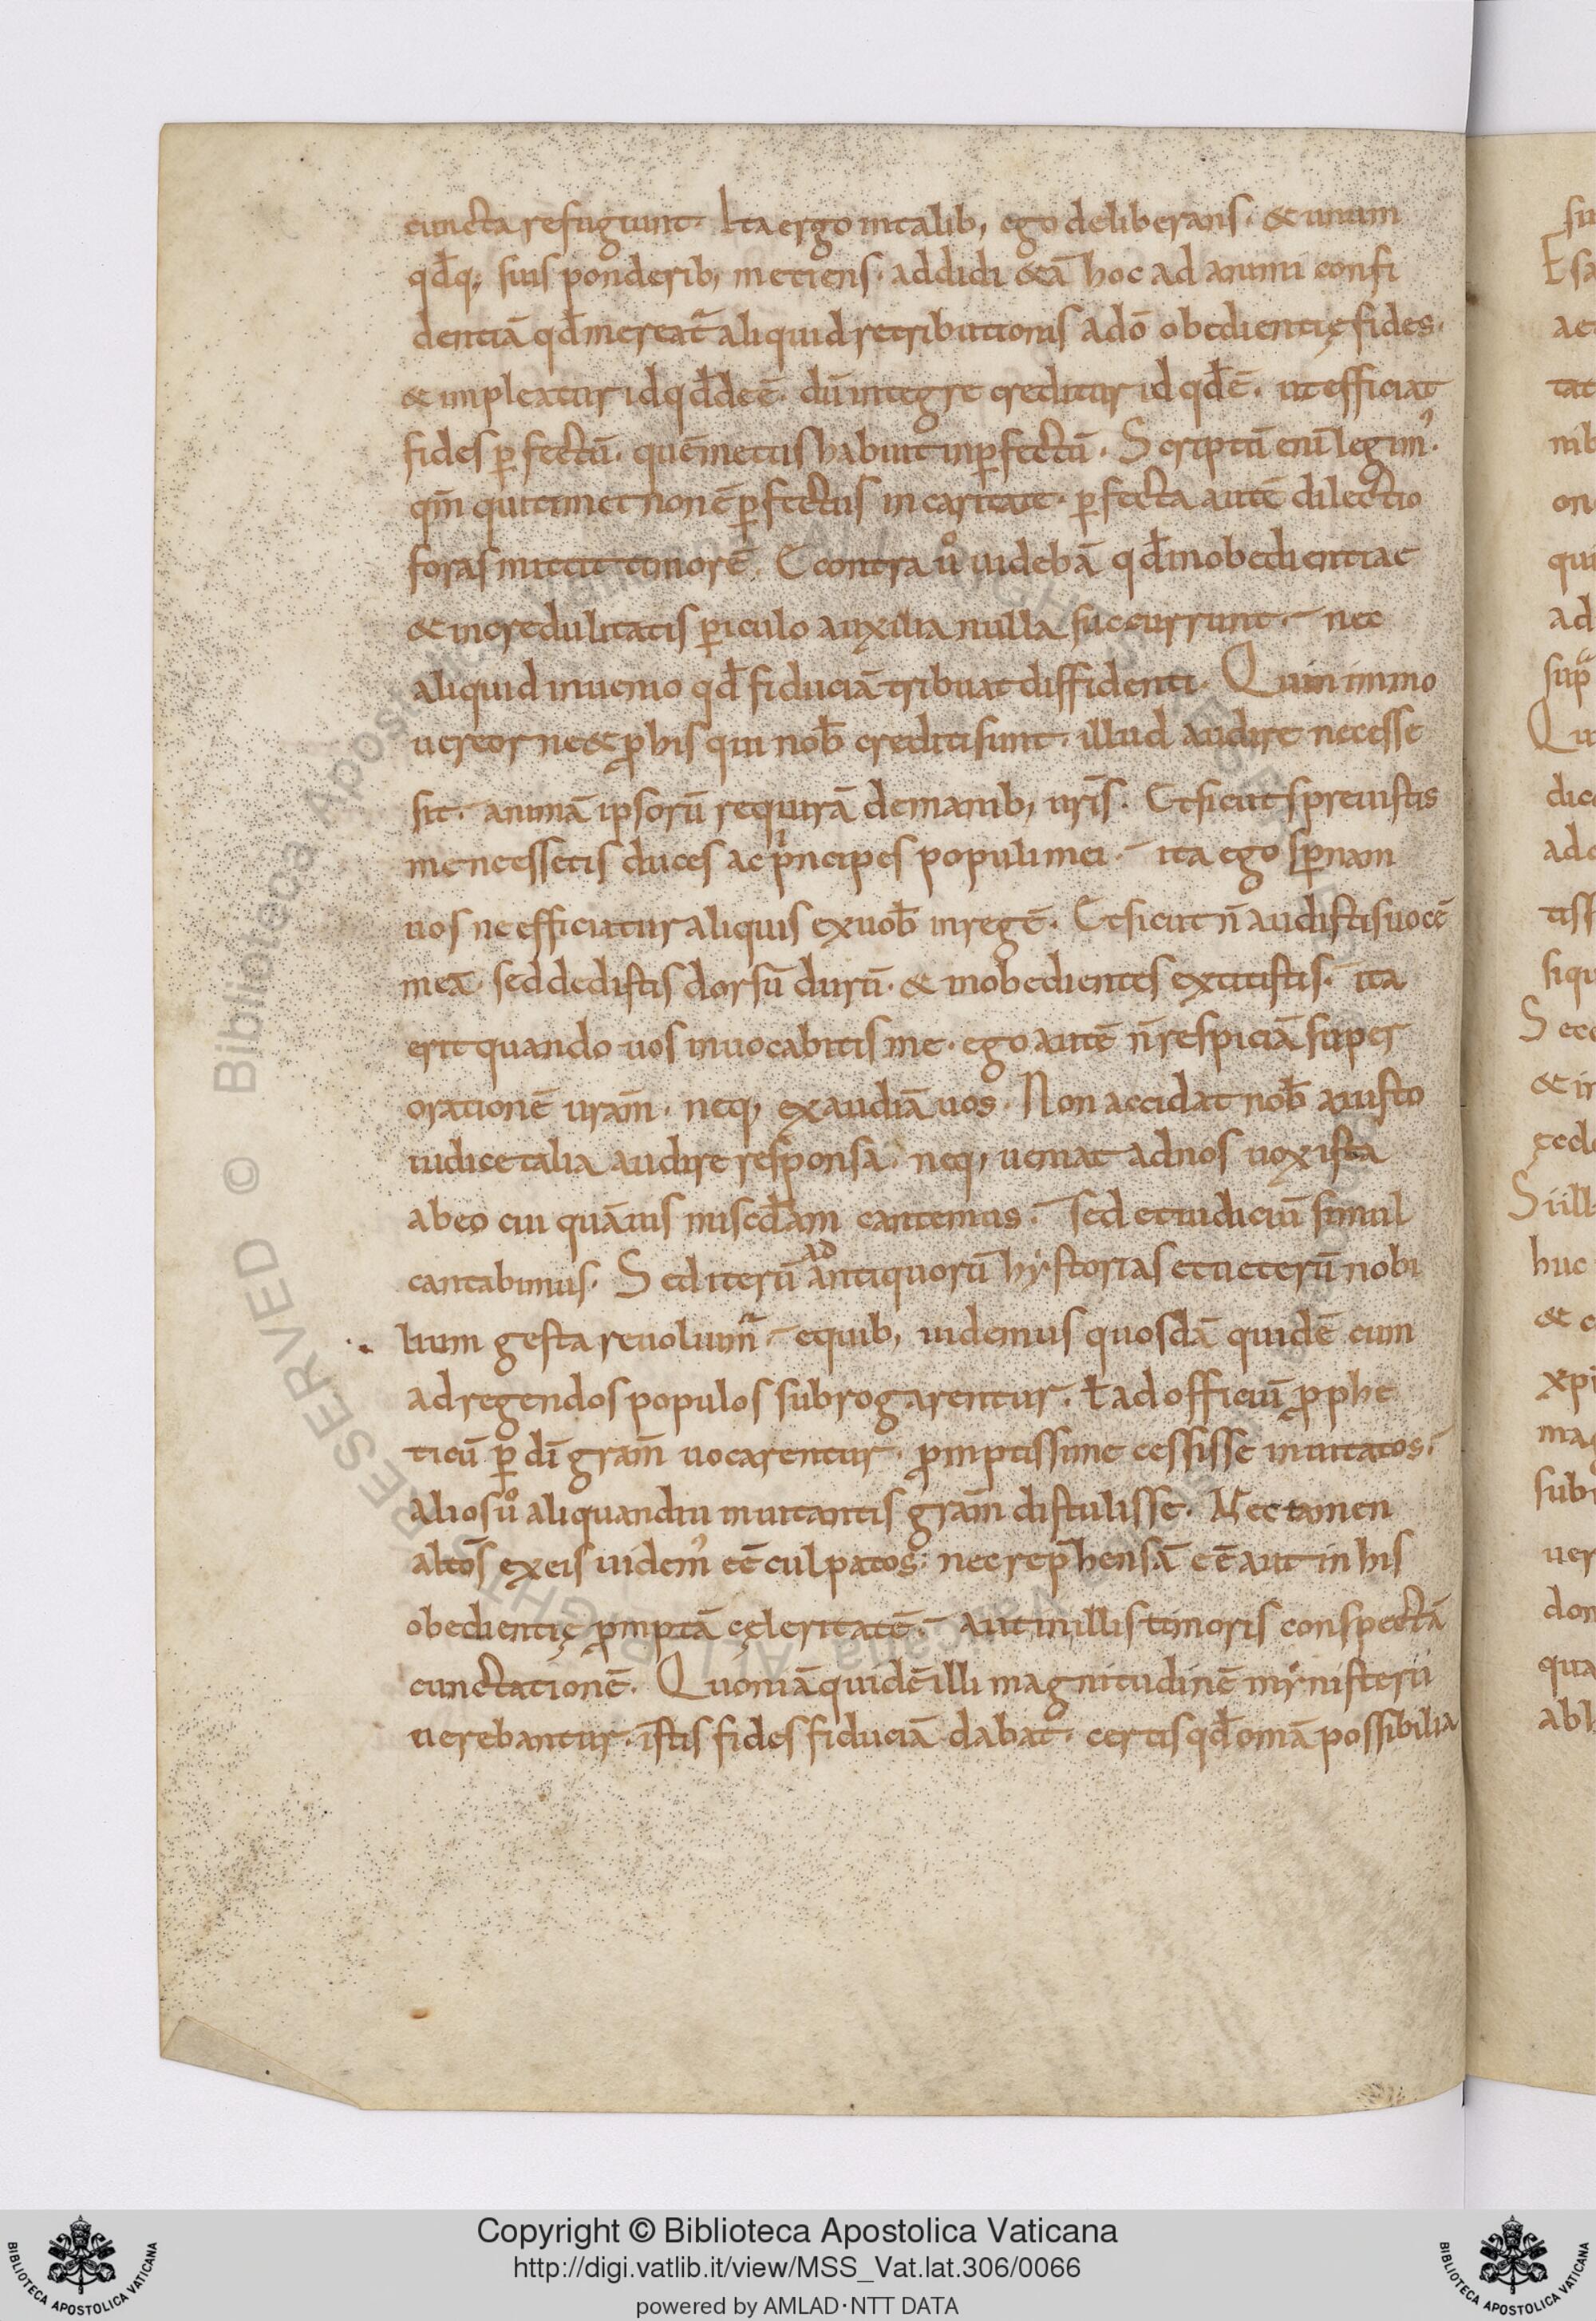 cuncta refugiunt. Ita ergo in talib; ego deliberans. & unum
qd̄q; suis ponderib; metiens. addidi &iā hoc ad animi confi
dentiā qd̄ mereat᷑ aliquid retributionis a dō obedientię fides.
& impleatur id qd̄ deē. dū integre creditur id qd̄ ē. ut efficiat
fides ꝑfectū. quē metus habuit inꝑfectū. Scriptū enī legim᾽.
qm̄ qui timet non ē ꝑfectus in caritate. ꝑfecta autē dilectio
foras mittit timorē. Econtra ůo uidebā qd̄ inobedientiae
& incredulitatis ꝑiculo auxilia nulla succurrunt. nec
aliquid inuenio qd̄ fiduciā tribuat diffidenti. Quin immo
uereor ne & ꝓ his qui nob̄ crediti sunt. illud audire necesse
sit. animā ipsorū requirā de manib; uris̄. Et sicut spreuistis
me ne essetis duces ac pⁱncipes populi mei. ita ego sꝑnam
uos ne efficiatur aliquis ex uob̄ in regē. Et sicut n̄ audistis uocē
meā. sed dedistis dorsū durū. & inobedientes extitistis. ita
erit quando uos inuocabitis me. ego autē n̄ respiciā super
orationē uram̄. neq; exaudiā uos. Non accidat nob̄ a iusto
iudice talia audire responsa. neq; ueniat ad nos uox ista
ab eo cui quāuis misc̄dam cantemus. sed et iudiciū simul
cantabimus. Sed iterū ad antiquorū hẏstorias et ueterū nobi
lium gesta reuoluim᷑. e quib; uidemus quosdā quidē cum
ad regendos populos subrogarentur. ł ad officiū ꝓphe
ticū ꝑ dī gram̄ uocarentur. ꝓmptissime cessisse inuitatos.
alios ůo aliquandiu inuitantis gram̄ distulisse. Nec tamen
altōs ex eis uidem᾽ eē culpatos. nec rep̄hensā eē aut in his
obedientię ꝓmptā cęleritatē. aut in illis timoris conspectā
cunctationē. Quoniā quidē illi magnitudinē mẏnisterii
uerebantur. istis fides fiduciā dabat. certis qd̄ omā possibilia
Copyright © Biblioteca Apostolica Vaticana
http://digi.vatlib.it/view/MSS_Vat.lat.306/0066
powered by AMLAD·NTT DATA